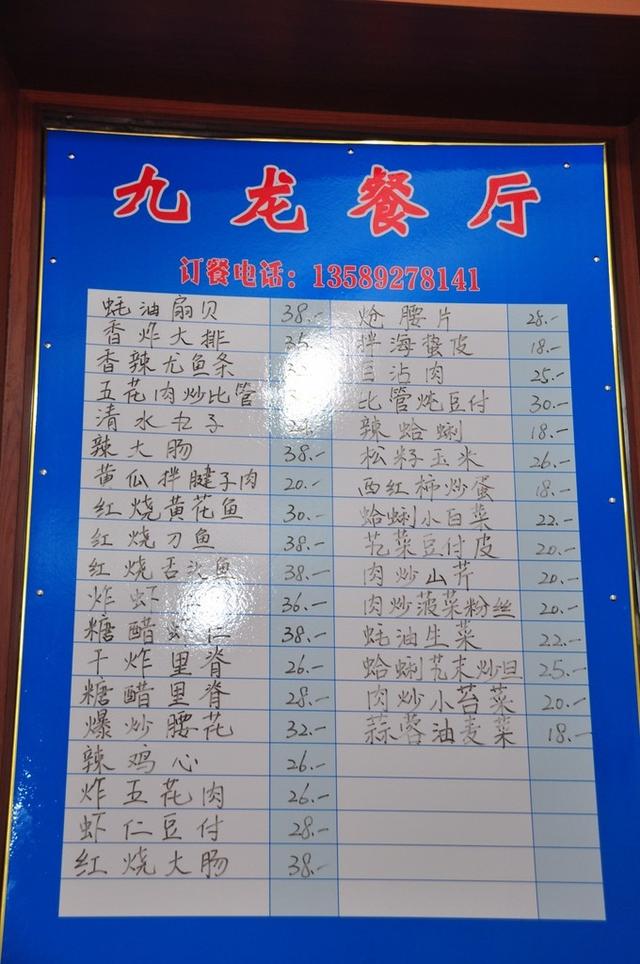 九龙餐厅
订餐电话：13589278141
蚝油扇贝 38.-
香炸大排
香辣尤鱼条
五花肉炒比管
清水
辣大肠 38.-
黄瓜拌腱子肉 20.-
红烧黄花鱼 30.-
红烧刀鱼 38.-
红烧舌头鱼 38.-
炸虾 36.-
糖醋虾仁 38.-
干炸里脊 26.-
糖醋里脊 28.-
爆炒腰花 32.-
辣鸡心 26.-
炸五花肉 26.-
虾仁豆付 28.-
红烧大肠 38.-
炝腰片 28.-
拌海蜇皮 18.-
沾肉 25.-
比管炖豆付 30.-
辣蛤蜊 18.-
松籽玉米 26.-
西红柿炒蛋 18.-
蛤蜊小白菜 22.-
芫菜豆付皮 20.-
肉炒山芹 20.-
肉炒菠菜粉丝 20.-
蚝油生菜 22.-
蛤蜊芫末炒旦 25.-
肉炒小苔菜 20.-
蒜蓉油麦菜 18.-